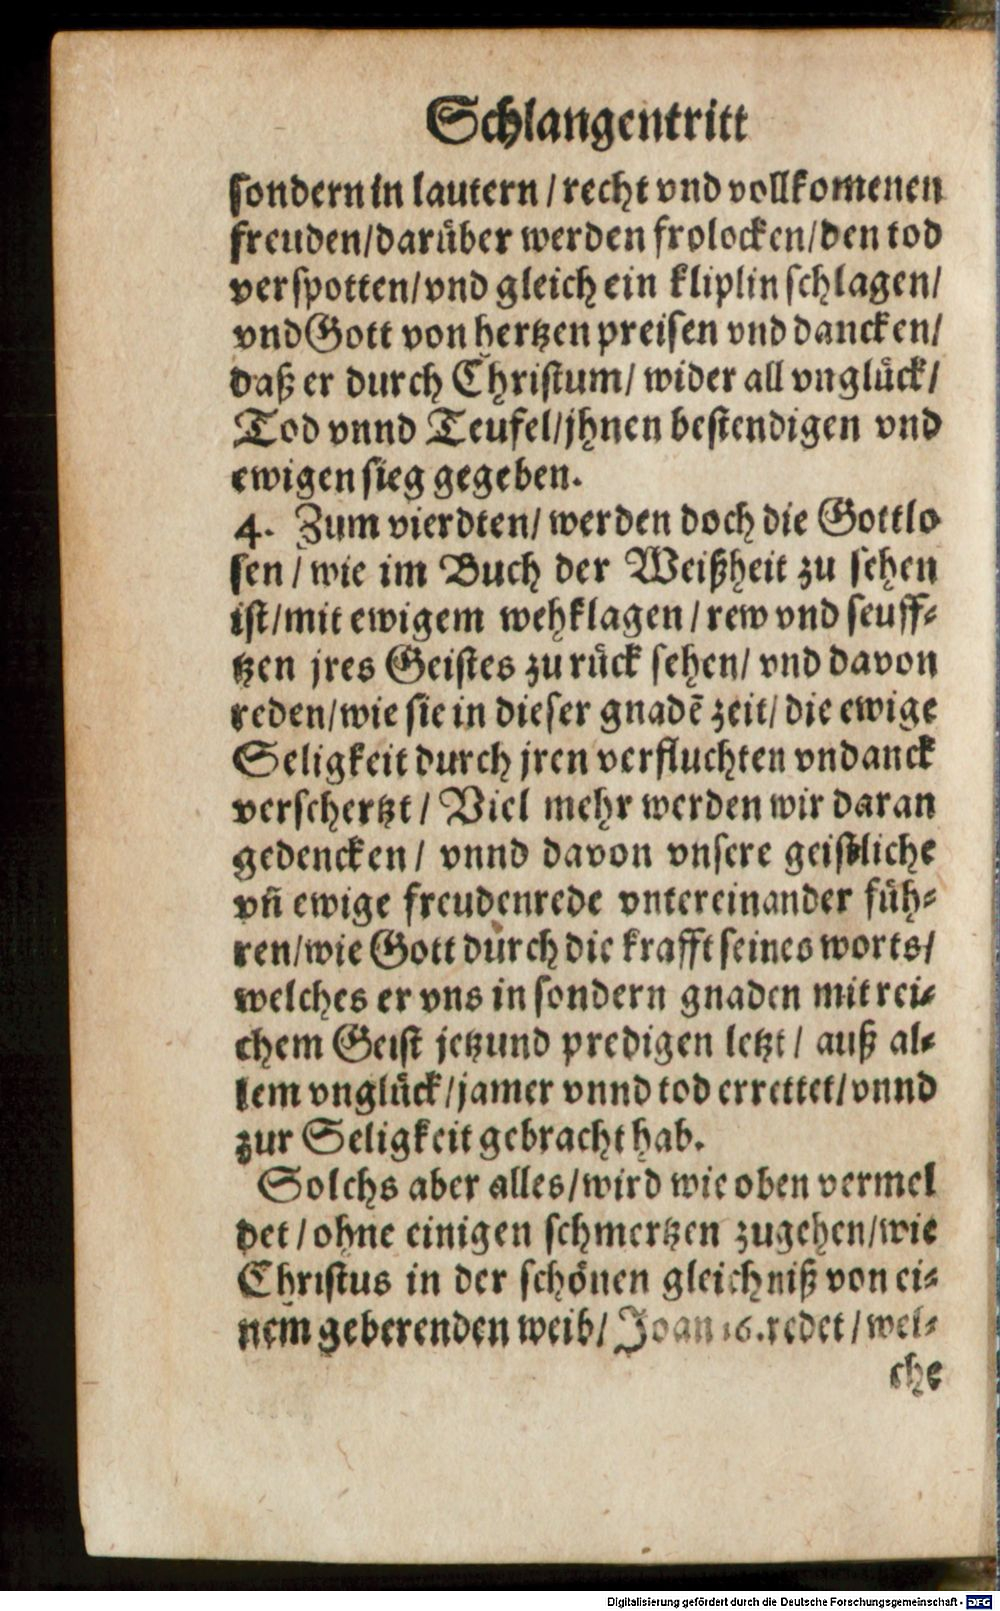 Schlangentritt
sondern in lautern / recht vnd vollkomenen
freuden/darüber werden frolocken/den tod
verspotten/vnd gleich ein kliplin schlagen/
vnd Gott von hertzen preisen vnd dancken/
daß er durch Christum/ wider all vnglück/
Tod vnnd Teufel/jhnen bestendigen vnd
ewigen sieg gegeben.
4. Zum vierdten/ werden doch die Gottlo
sen / wie im Buch der Weißheit zu sehen
ist/mit ewigem wehklagen / rew vnd seuff-
tzen jres Geistes zu rück sehen/ vnd davon
reden/wie sie in dieser gnadẽ zeit/ die ewige
Seligkeit durch jren verfluchten vndanck
verschertzt / Viel mehr werden wir daran
gedencken/ vnnd davon vnsere geistliche
vñ ewige freudenrede vntereinander füh-
ren/wie Gott durch die krafft seines worts/
welches er vns in sondern gnaden mit rei-
chem Geist jetzund predigen letzt / auß al-
lem vnglück/jamer vnnd tod errettet/vnnd
zur Seligkeit gebracht hab.
Solchs aber alles/wird wie oben vermel
det / ohne einigen schmertzen zugehen/wie
Christus in der schönen gleichniß von ei-
nem geberenden weib/ Joan 16. redet / wel-
che
Digitalisierung gefördert durch die Deutsche Forschungsgemeinschaft - DFG